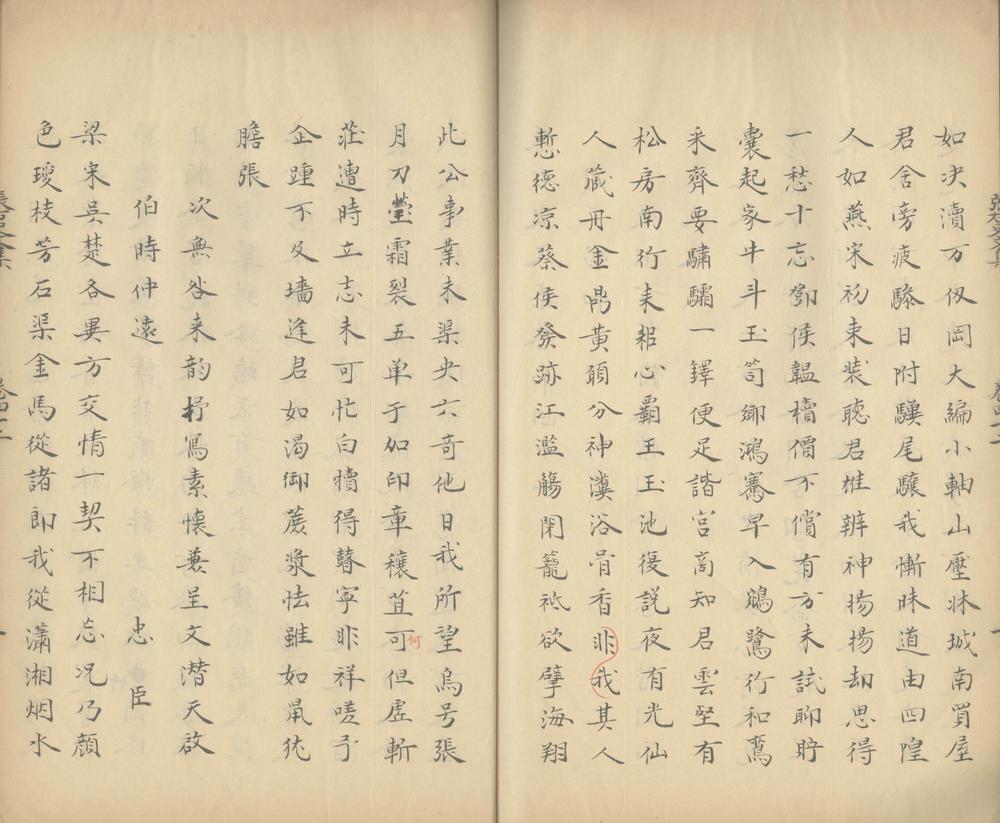 如决瀆万仭岡大編小軸山壓牀城南買屋
君舍旁疲驂日附驥尾驤我慚昧道由四隍
人如燕宋初束裝聽君椎辨神揚揚却思得
一愁十忘鄧侯韞櫝價不償有方未試聊貯
囊起家牛斗玉笥鄉鴻騫早入鵷鷺行和鸞
采齊要驌驦一鐸便足諧宫商知君雲壑有
松房南行未報心覇王玉池後説夜有光仙
人藏丹金鼎黄頭分神瀵浴骨香非我其人
慙德凉蔡侯發跡江濫觴閉籠袛欲擘海翔
此公事業未渠央六奇他日我所望烏号張
月刀瑩霜裂五单于加印章穰苴可但虗斬
何
莊遭時立志未可忙白犢得瞽寧非祥嗟予
企踵不及墻逢君如渴御蔗漿怯雖如鼠犹
膽張
次無咎来韵杼寫素懷兼呈文潜天啟
伯時仲遠
忠臣
梁宋吳楚各異方交情一契不相忘况乃顔
色瓊枝芳石渠金馬從諸郎我從瀟湘烟水